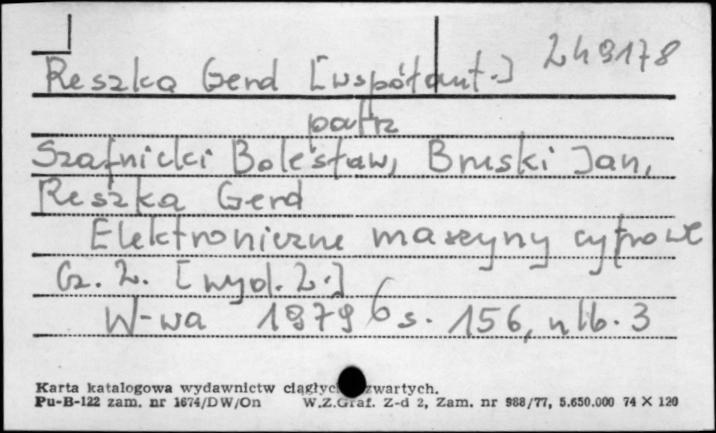 249178
Reszka Gerd [współaut.]
patrz
Szafnicki Bolesław, Bruski Jan,
Reszka Gerd
Elektroniczne maszyny cyfrowe
Cz. 2. [wyd. 2.]
W-wa 1979 s. 156, nlb. 3
Karta katalogowa wydawnictw ciągłych zwartych.
Pu-B-122 zam. nr 1674/DW/On W.Z.Graf. Z-d 2, Zam. nr 988/77, 5.650.000 74 X 120